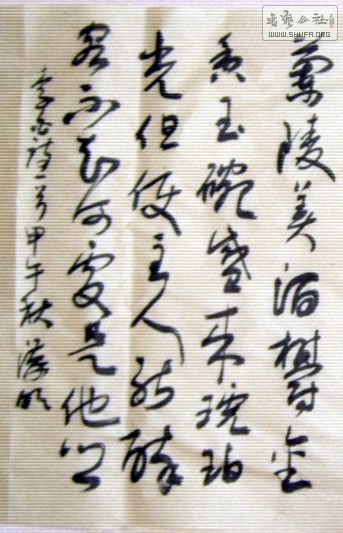 書藝公社
WWW.SHUFA.ORG
蘭陵美酒欝金
香玉碗盛来琥珀
光但使主人能醉
客不知何處是他乡
李白诗一首甲午秋